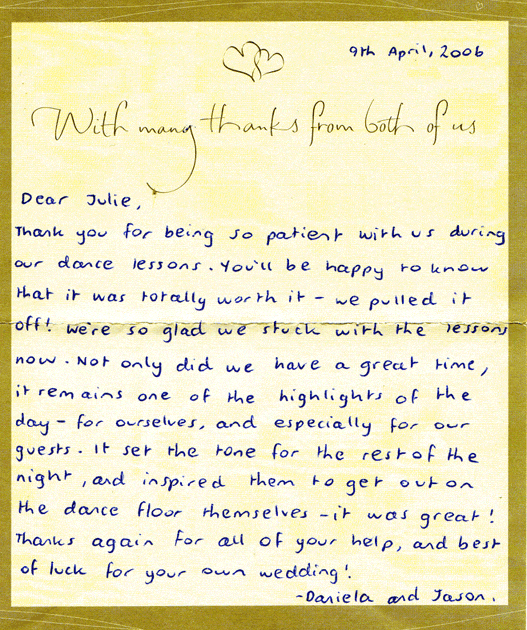 9th April, 2006
With many thanks from both of us
Dear Julie,
Thank you for being so patient with us during
our dance lessons. You'll be happy to know
that it was totally worth it - we pulled it
off! We're so glad we stuck with the lessons
now. Not only did we have a great time,
it remains one of the highlights of the
day - for ourselves, and especially for our
guests. It set the tone for the rest of the
night, and inspired them to get out on
the dance floor themselves - it was great!
Thanks again for all of your help, and best
of luck for your own wedding!
-Daniela and Jason.